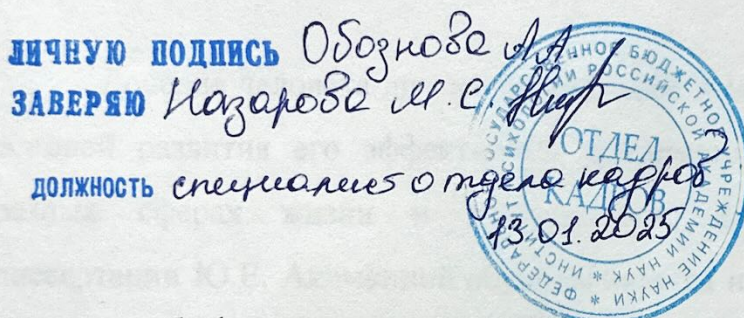 ЛИЧНУЮ ПОДПИСЬ Обознова А.А
ЗАВЕРЯЮ Назарова М.С.
ДОЛЖНОСТЬ специалист отдела кадров
13.01.2025
ФЕДЕРАЛЬНОЕ ГОСУДАРСТВЕННОЕ БЮДЖЕТНОЕ УЧРЕЖДЕНИЕ НАУКИ *
ИНСТИТУТ ПСИХОЛОГИИ РОССИЙСКОЙ АКАДЕМИИ НАУК *
ОТДЕЛ
КАДРОВ